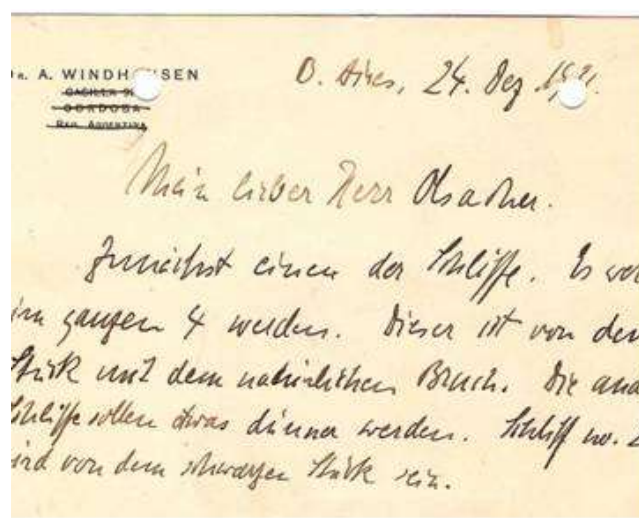 Dr. A. WINDHAUSEN
CASILLA
CORDOBA
Rep. Argentina
B. Aires, 24. Dez
Mein lieber Herr Olsacher.
Zunächst einen der Schliffe. Es
im ganzen 4 werden. Dieser ist von dem
Stück mit dem natürlichen Bruch. Die
Schliffe sollen etwas dünner werden. Schliff no. 2
wird von dem schwarzen Stück sein.